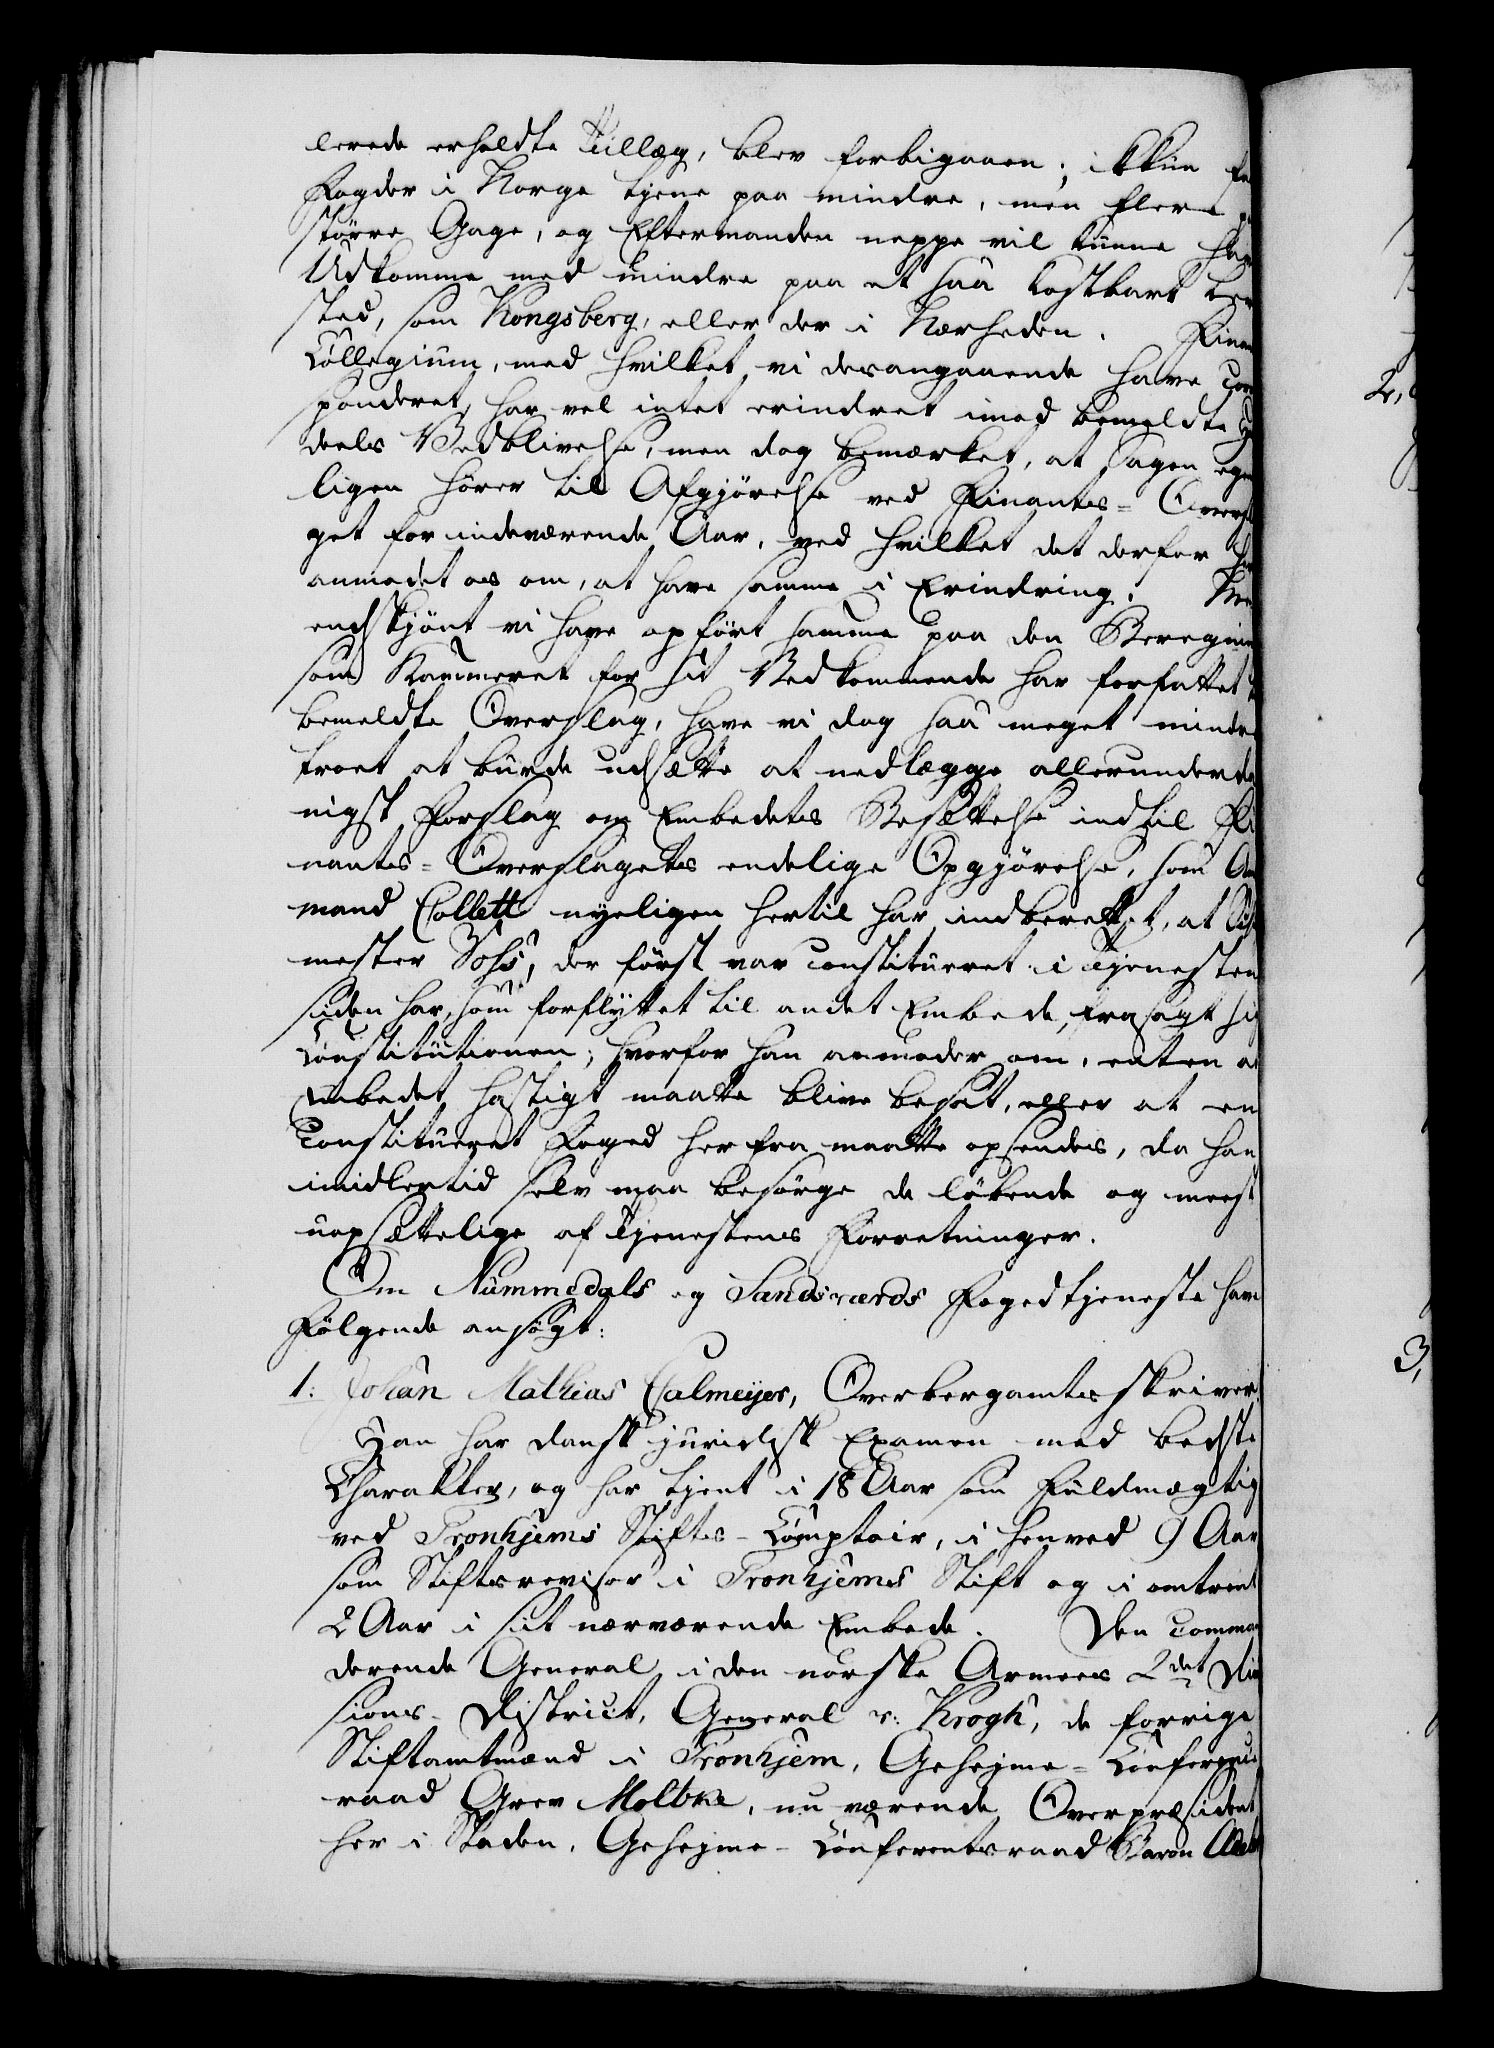 lerede erholdte Tillæg, blev forbigaaen; ikkun
Fogder i Norge tjene paa mindre, men flere
större Gage, og Eftermanden neppe vil kunne
Udkomme med mindre paa et saa kostbart
sted, som Kongsberg, eller der i Nærheden.
Collegium, med hvilket vi desangaaende have
sponderet, har vel intet erindret imod bemeldte
deels Vedblivelse, men dog bemærket, at Sagen
ligen hörer til Afgjörelse ved Finants-
get for indeværende Aar, ved hvilket det derfor
anmodet os om, at have samme i Erindring.
endskjönt vi have opfört samme paa den
som Kammeret for sit Vedkommende har forfattet
bemeldte Overslag, have vi dog saa meget mindre
troet at burde udsætte at nedlægge allerunderda
nigst Forslag om Embedets Besættelse indtil Fi
nants-Overslagets endelige Opgjörelse, som
mand Collett nyeligen hertil har indberettet, at
mester Vohs, der först var constitueret i Tjenesten
siden har, som forflyttet til andet Embede, frasagt sig
Constitutionen; hvorfor han anmoder om, enten at
Embedet hastigt maatte blive besat, eller at en
Constitueret Foged herfra maatte opsendes, da han
imidlertid selv maa besörge de löbende og meest
uopsættelige af Tjenestens Forretninger.
Om Nummedals og Sandsværds Fogedtjeneste have
Fölgende ansögt:
1: Johan Mathias Calmeyer, Overbergamtsskriver.
Han har dansk juridisk Examen med bedste
Charakter, og har tjent i 18 Aar som Fuldmægtig
ved Tronhjems Stifts-Comptoir, i henved 9 Aar
som Stiftsrevisor i Tronhjems Stift og i omtrent
2 Aar i sit nærværende Embede. Den comman
derende General i den norske Armees 2det Divi
sions-District, General v: Krogh, de forrige
Stiftamtmænd i Tronhjem, Geheime-Conferents
raad Grev Moltke, nu værende Overpræsident
her i Staden, Geheime-Conferentsraad Baron
2,
3,